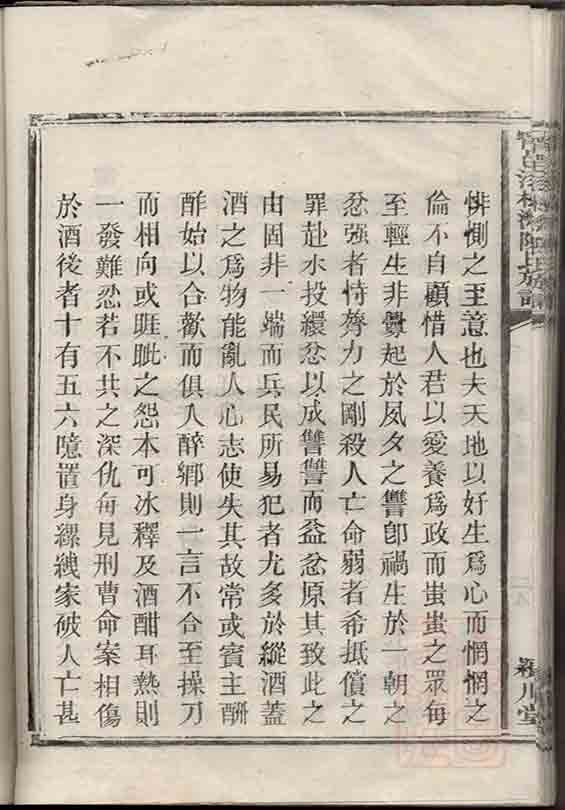 悱惻之至意也夫天地以好生爲心而惘惘之
倫不自顧惜人君以愛養爲政而蚩蚩之眾每
至輕生非釁起於夙夕之讐卽禍生於一朝之
忿强者恃膂力之剛殺人亡命弱者希抵償之
罪赴水投繯忿以成讐讐而益忿原其致此之
由固非一端而兵民所易犯者尤多於縱酒蓋
酒之爲物能亂人心志使失其故常或賓主酬
酢始以合歡而俱入醉鄉則一言不合至操刀
而相向或睚眦之怨本可冰釋及酒酣耳熱則
一發難忍若不共之深仇每見刑曹命案相傷
於酒後者十有五六噫置身縲絏家破人亡甚
陳氏族譜
潁川堂